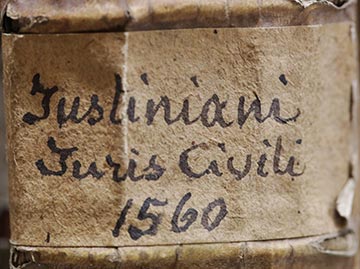 Justiniani
Juris Civili
1560